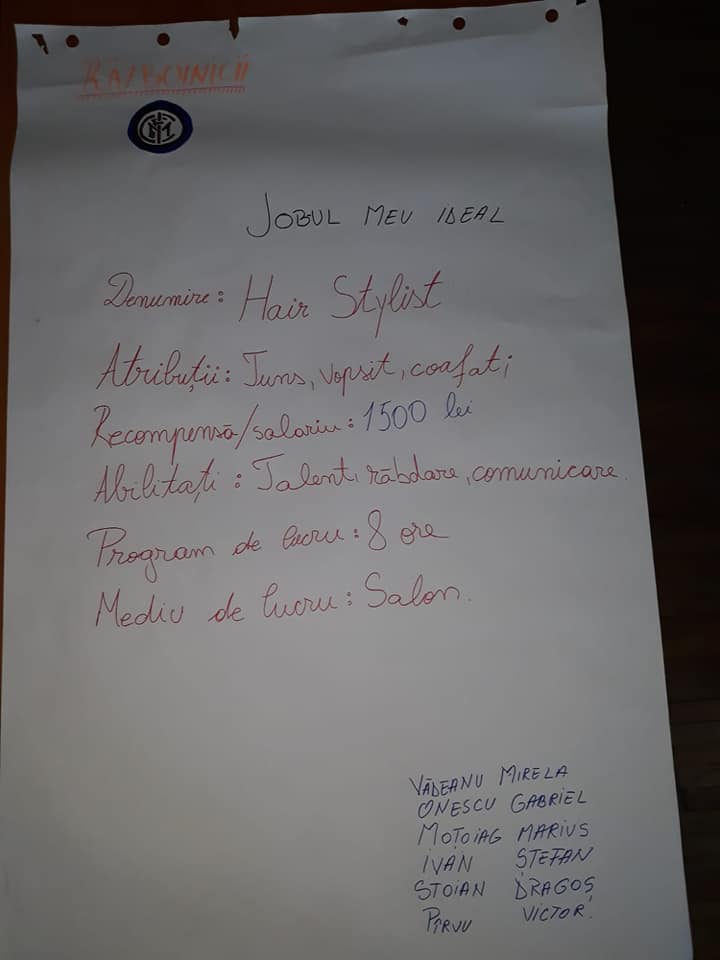 RĂZBOINICII
JOBUL MEU IDEAL
Denumire: Hair Stylist
Atribuții: Tuns, vopsit, coafat;
Recompensă/salariu: 1500 lei
Abilitați: Talent, răbdare, comunicare.
Program de lucru: 8 ore
Mediu de lucru: Salon.
VĂDEANU MIRELA
ONESCU GABRIEL
MOȚOIAG MARIUS
IVAN ȘTEFAN
STOIAN DRAGOȘ
PÎRVU VICTOR.